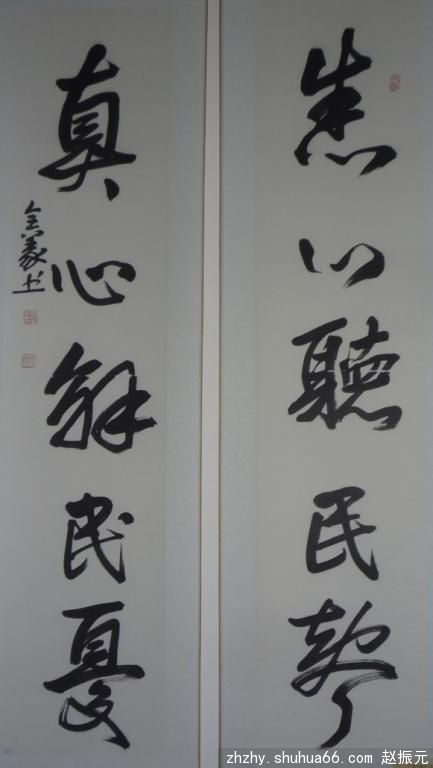 悉心聽民聲
真心解民憂
zhzhy.shuhua66.com 赵振元